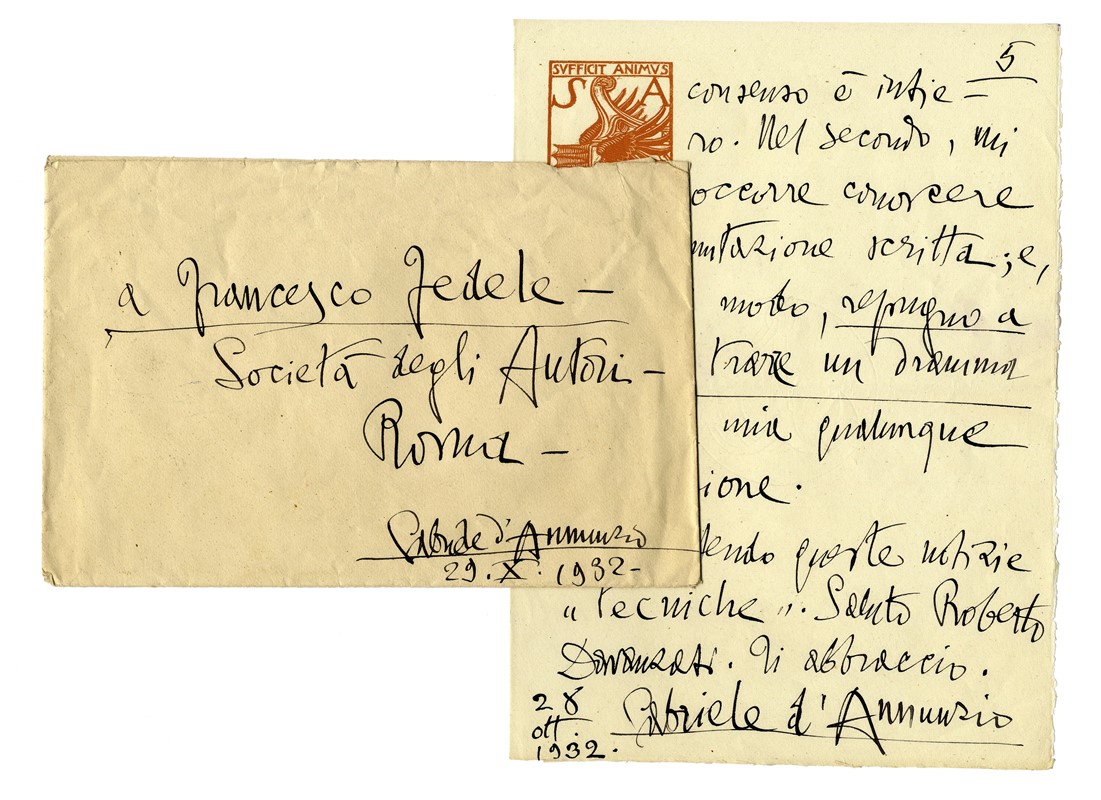 a Francesco Fedele —
Società degli Autori —
Roma —
Gabriele d'Annunzio
29.X.1932-
5
SVFFICIT ANIMVS
S A
consenso è intie-
ro. Nel secondo, mi
occorre conoscere
mutazione scritta; e,
modo, repugno a
trarre un dramma
mia qualunque
ione.
dendo queste notizie
"tecniche". Saluto Roberto
Davanzati. Ti abbraccio.
28
ott.
1932.
Gabriele d'Annunzio